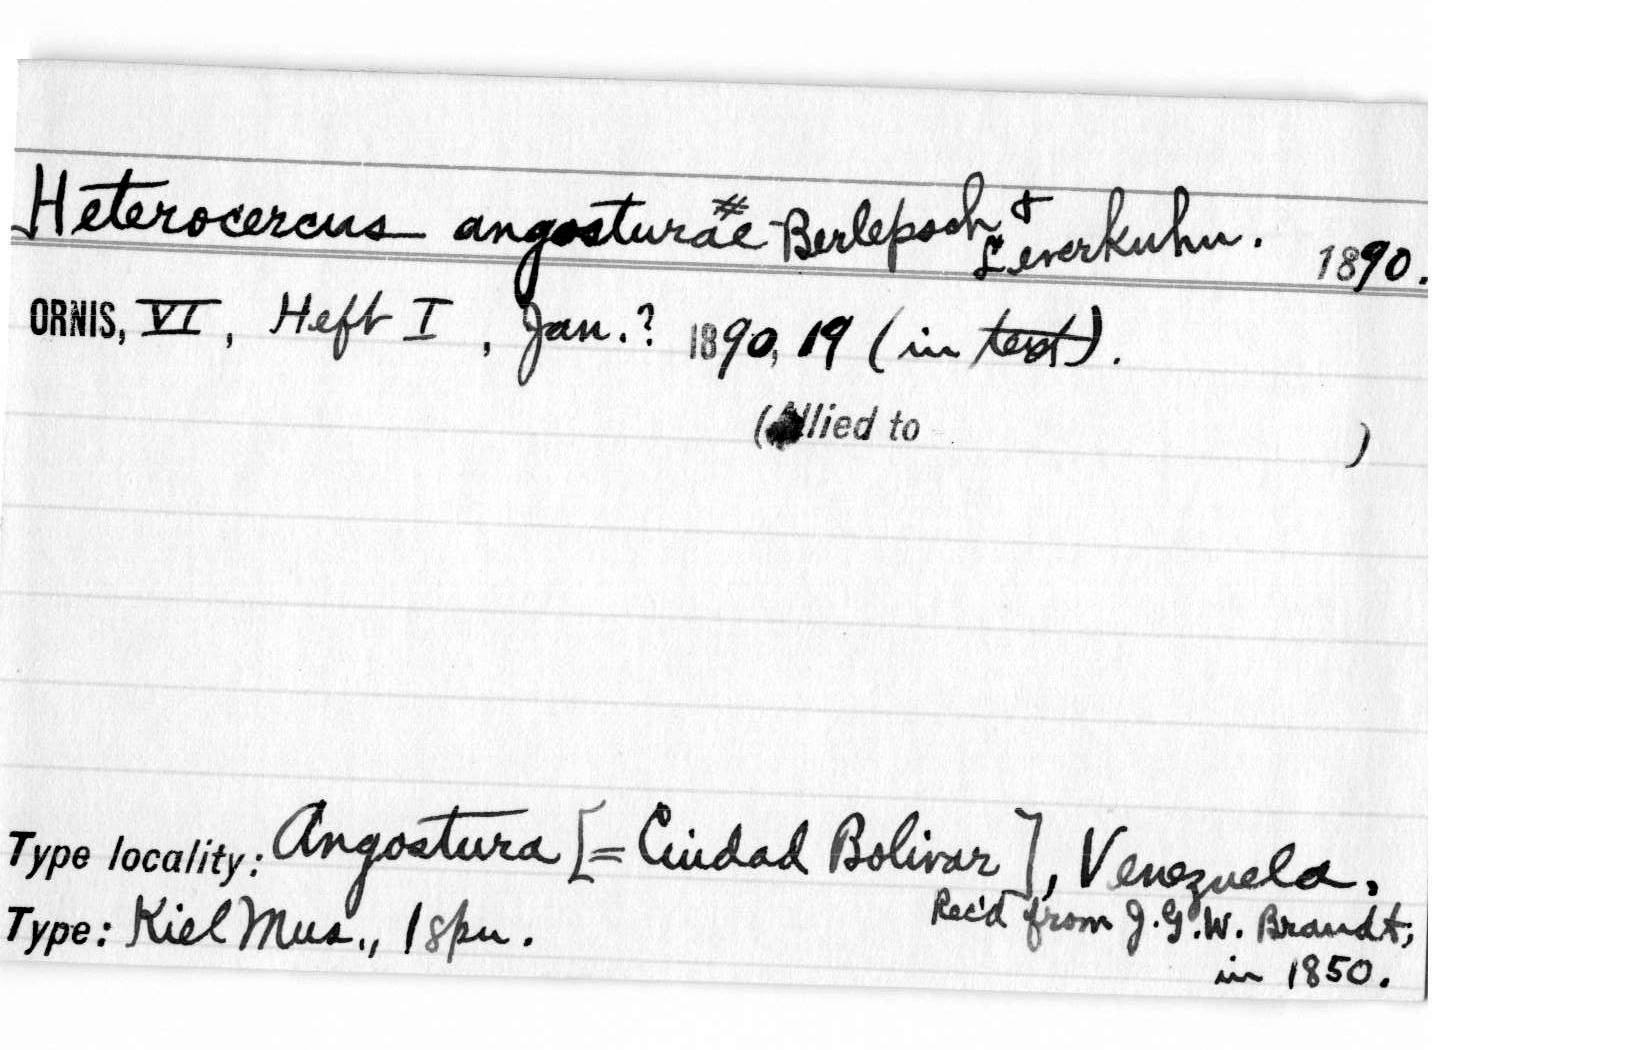 Heterocercus angosturae # Berlepsch & Leverkuhn. 1890.
ORNIS, VI, Heft I, Jan.? 1890, 19 (in text).
(Allied to )
Type locality: Angostura [= Ciudad Bolivar], Venezuela.
Type: Kiel Mus., 1 spn. Rec'd from J.G.W. Brandt,
in 1850.